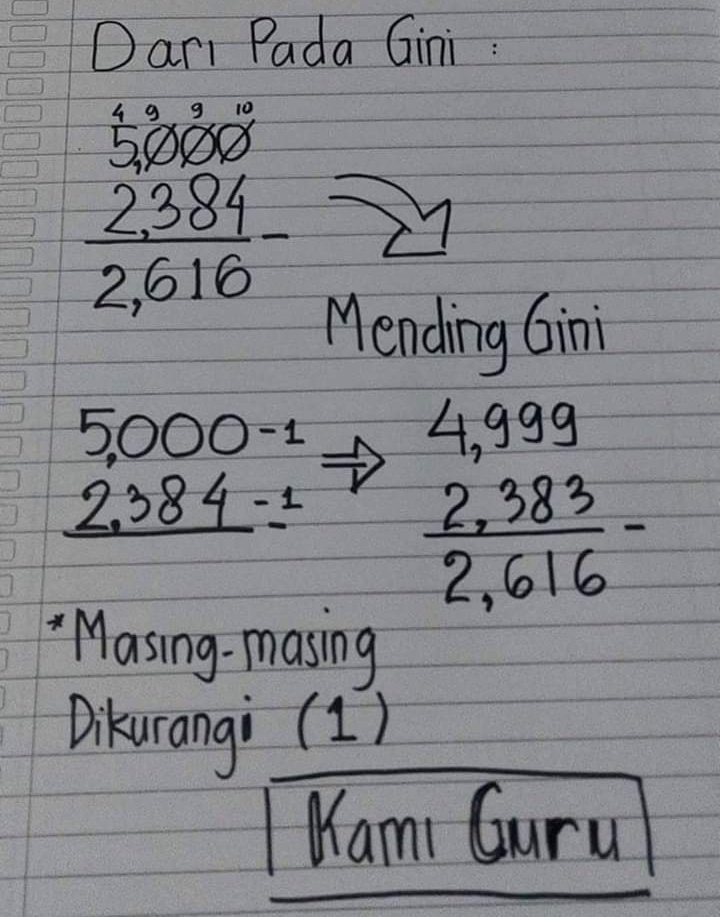 Dari Pada Gini :
4 9 9 10
5,000
2,384 -
2,616
Mending Gini
5,000 -1 ⇒ 4,999
2,384 -1 2,383 -
2,616
*Masing-masing
Dikurangi (1)
Kami Guru